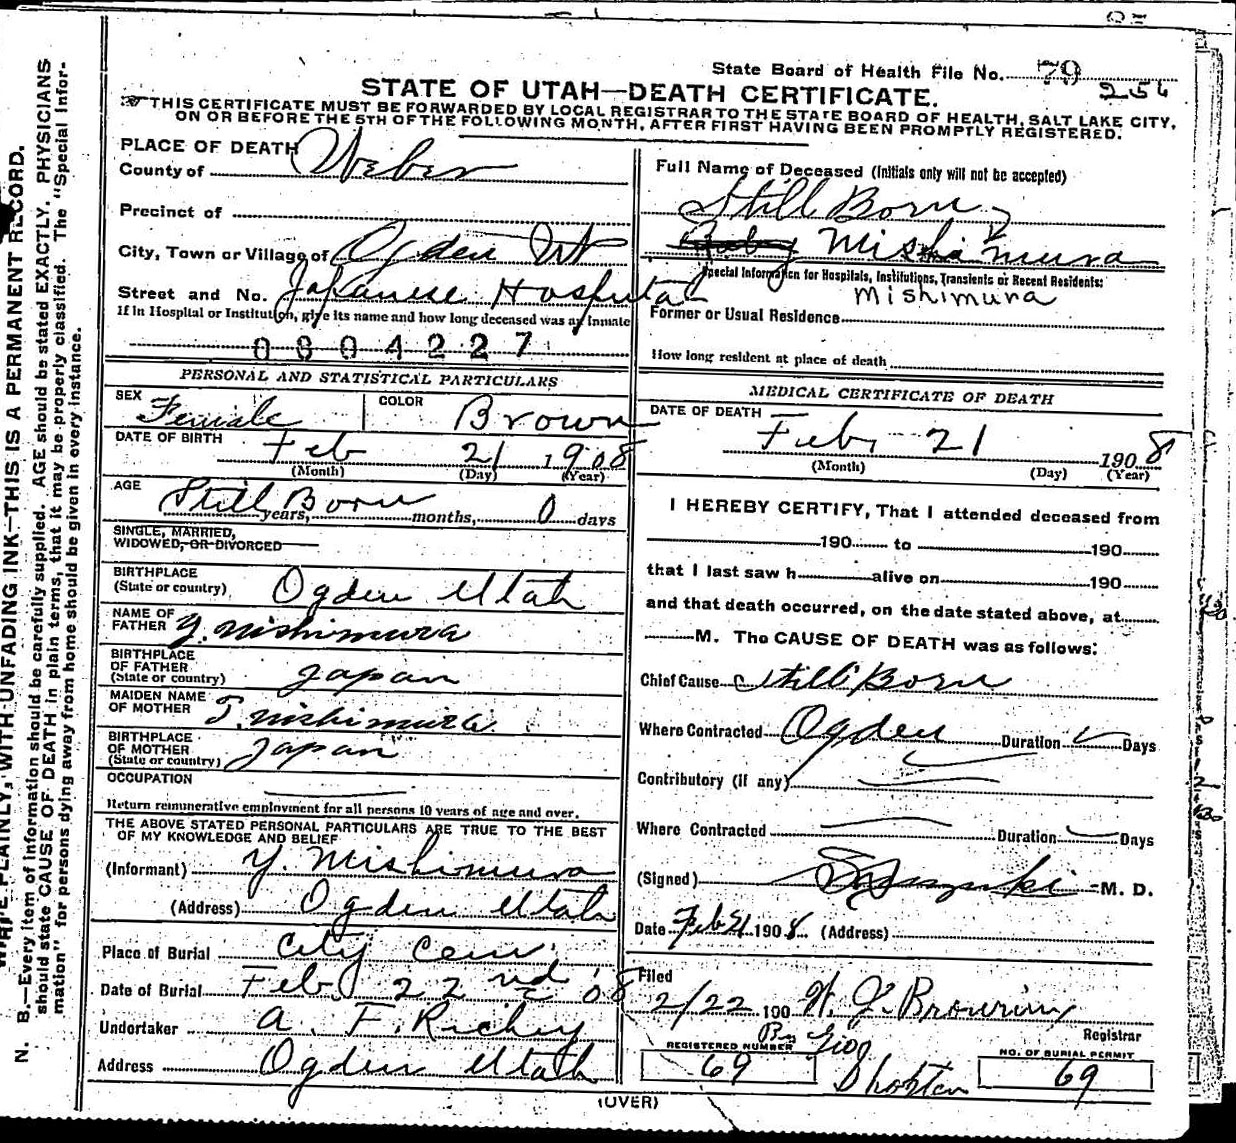 State Board of Health File No. 79
256
STATE OF UTAH—DEATH CERTIFICATE.
THIS CERTIFICATE MUST BE FORWARDED BY LOCAL REGISTRAR TO THE STATE BOARD OF HEALTH, SALT LAKE CITY,
ON OR BEFORE THE 5TH OF THE FOLLOWING MONTH, AFTER FIRST HAVING BEEN PROMPTLY REGISTERED.
N. B.—Every item of information should be carefully supplied. AGE should be stated EXACTLY. PHYSICIANS
should state CAUSE OF DEATH in plain terms, that it may be properly classified. The "Special Infor-
mation" for persons dying away from home should be given in every instance.
PLAINLY, WITH UNFADING INK—THIS IS A PERMANENT RECORD.
PLACE OF DEATH
County of Weber
Precinct of
City, Town or Village of Ogden Ut
Street and No. Japanese Hospital
If in Hospital or Institution, give its name and how long deceased was an inmate
0804227
PERSONAL AND STATISTICAL PARTICULARS
SEX Female COLOR Brown
DATE OF BIRTH Feb 21 1908
(Month) (Day) (Year)
AGE Still Born years, months, 0 days
SINGLE, MARRIED,
WIDOWED, OR DIVORCED
BIRTHPLACE
(State or country) Ogden Utah
NAME OF
FATHER Y. Nishimura
BIRTHPLACE
OF FATHER
(State or country) Japan
MAIDEN NAME
OF MOTHER T. Nishimura
BIRTHPLACE
OF MOTHER
(State or country) Japan
OCCUPATION
Return remunerative employment for all persons 10 years of age and over.
THE ABOVE STATED PERSONAL PARTICULARS ARE TRUE TO THE BEST
OF MY KNOWLEDGE AND BELIEF
(Informant) Y. Mishimura
(Address) Ogden Utah
Place of Burial City Cem.
Date of Burial Feb 22nd '08
Undertaker A. F. Richey
Address Ogden Utah
Full Name of Deceased (Initials only will not be accepted)
Still Born
Baby Mishimura
Special Information for Hospitals, Institutions, Transients or Recent Residents:
Mishimura
Former or Usual Residence
How long resident at place of death
MEDICAL CERTIFICATE OF DEATH
DATE OF DEATH Feb, 21 1908
(Month) (Day) (Year)
I HEREBY CERTIFY, That I attended deceased from
190 to 190
that I last saw h alive on 190
and that death occurred, on the date stated above, at
M. The CAUSE OF DEATH was as follows:
Chief Cause Still Born
Where Contracted Ogden Duration Days
Contributory (if any)
Where Contracted Duration Days
(Signed) Suzuki M. D.
Date Feb 21 1908 (Address)
Filed
2/22 190 W. J. Browning
Registrar
REGISTERED NUMBER
69
By Geo
Shorten
NO. OF BURIAL PERMIT
69
(OVER)